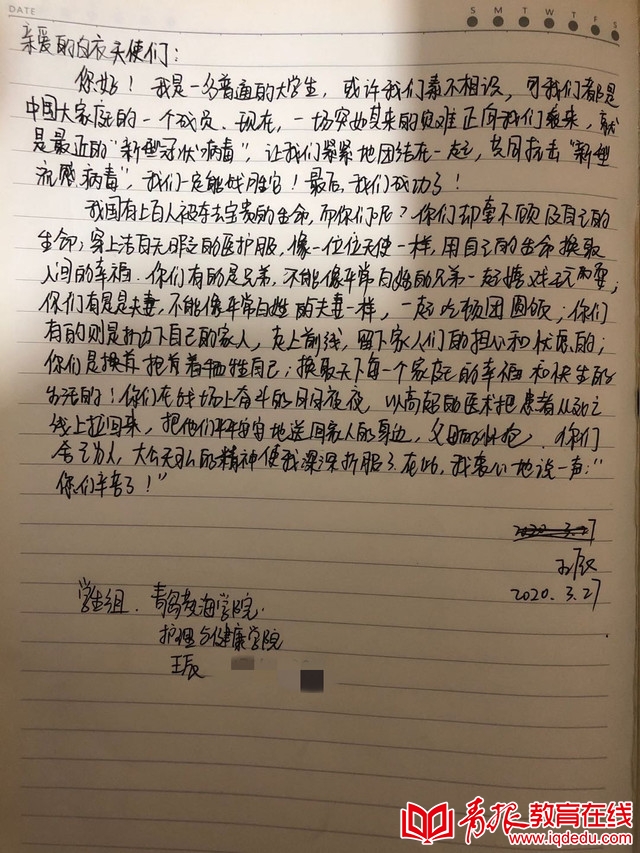 DATE
S M T W T F S
亲爱的白衣天使们：
你好！我是一名普通的大学生，或许我们素不相识，可我们都是
中国大家庭的一个成员。现在，一场突如其来的灾难正向我们袭来，就
是最近的“新型冠状病毒”，让我们紧紧地团结在一起，共同抗击“新型
冠感病毒”，我们一定能战胜它！最后，我们成功了！
我国有上百人被夺去宝贵的生命，而你们呢？你们却毫不顾及自己的
生命；穿上洁白无瑕的医护服，像一位位天使一样，用自己的生命换取
人间的幸福。你们有的是兄弟，不能像平常百姓的兄弟一起嬉戏玩耍；
你们有是是夫妻，不能像平常百姓的夫妻一样，一起吃顿团圆饭；你们
有的则是抛下自己的家人，走上前线，留下家人们的担心和忧虑的；
你们是抱着牺牲自己；换取天下每一个家庭的幸福和快乐的
生活的！你们在战场上奋斗的日日夜夜，以高超的医术把患者从死亡
线上拉回来，把他们平平安安地送回家人的身边，父母的怀抱。你们
舍己为人，大公无私的精神使我深深折服了。在此，我衷心地说一声：“
你们辛苦了！”
2020.3.27
王辰
2020.3.27
学生组. 青岛滨海学院.
护理与健康学院
王辰
青报教育在线
www.iqdedu.com